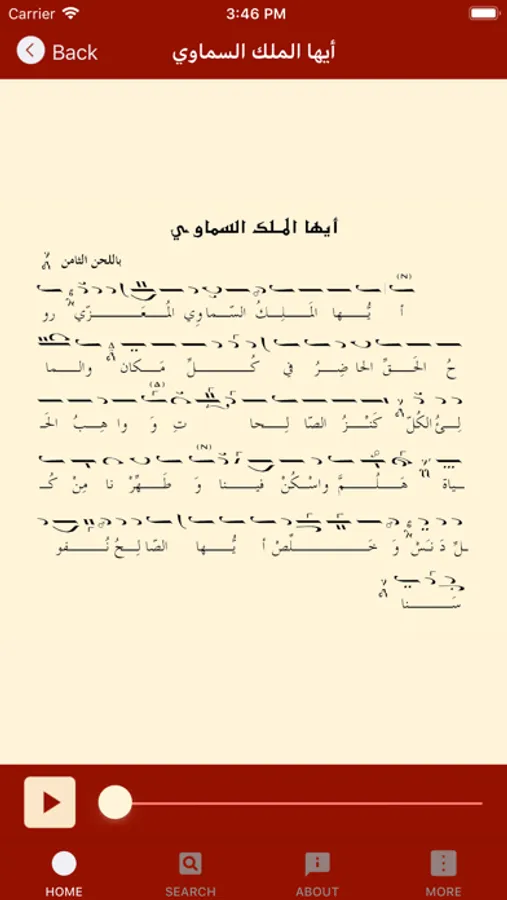 Carrier 3:46 PM
Back أيها الملك السماوي
أيها الملك السماوي
باللحن الثامن
(N)
أ يُّـــها المَـلِـكُ السَّـماوِي المُـعَـــزّي رو
حُ الحَـقِّ الحاضِـرُ في كُـــلِّ مَـكان والـما
(۵)
لِـئُ الكُلّ كَنْـــزُ الصّا لِـحا تِ وَ وا هِـبُ الحَـ
(N)
ـياة هَـلُـــمَّ واسْكُنْ فيـنـا وَ طَـهِّرْ نا مِنْ كُـ
ـلِّ دَنَـسْ وَ خَـــلِّصْ أ يُّـــها الصّالِـحُ نُـفو
سَـــنا
HOME SEARCH ABOUT MORE